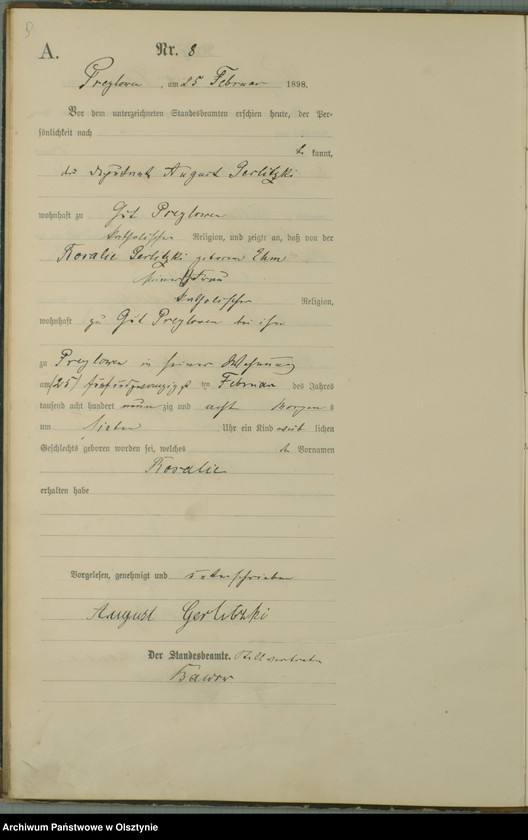 A.
Nr. 8
Preylowen, am 25 Februar 1898.
Vor dem unterzeichneten Standesbeamten erschien heute, der Per-
sönlichkeit nach
be kannt,
der Deputant August Gerlitzki
wohnhaft zu Gut Preylowen
katholischer Religion, und zeigte an, daß von der
Rosalie Gerlitzki geborene Ehm
seiner Frau
katholischer Religion,
wohnhaft zu Gut Preylowen bei ihm
zu Preylowen in seiner Wohnung
am (25) fünfundzwanzigst ten Februar des Jahres
tausend acht hundert neun zig und acht Morgens
um sieben Uhr ein Kind weib lichen
Geschlechts geboren worden sei, welches den Vornamen
Rosalie
erhalten habe
Vorgelesen, genehmigt und unterschrieben
August Gerlitzki
Der Standesbeamte.
Archiwum Państwowe w Olsztynie